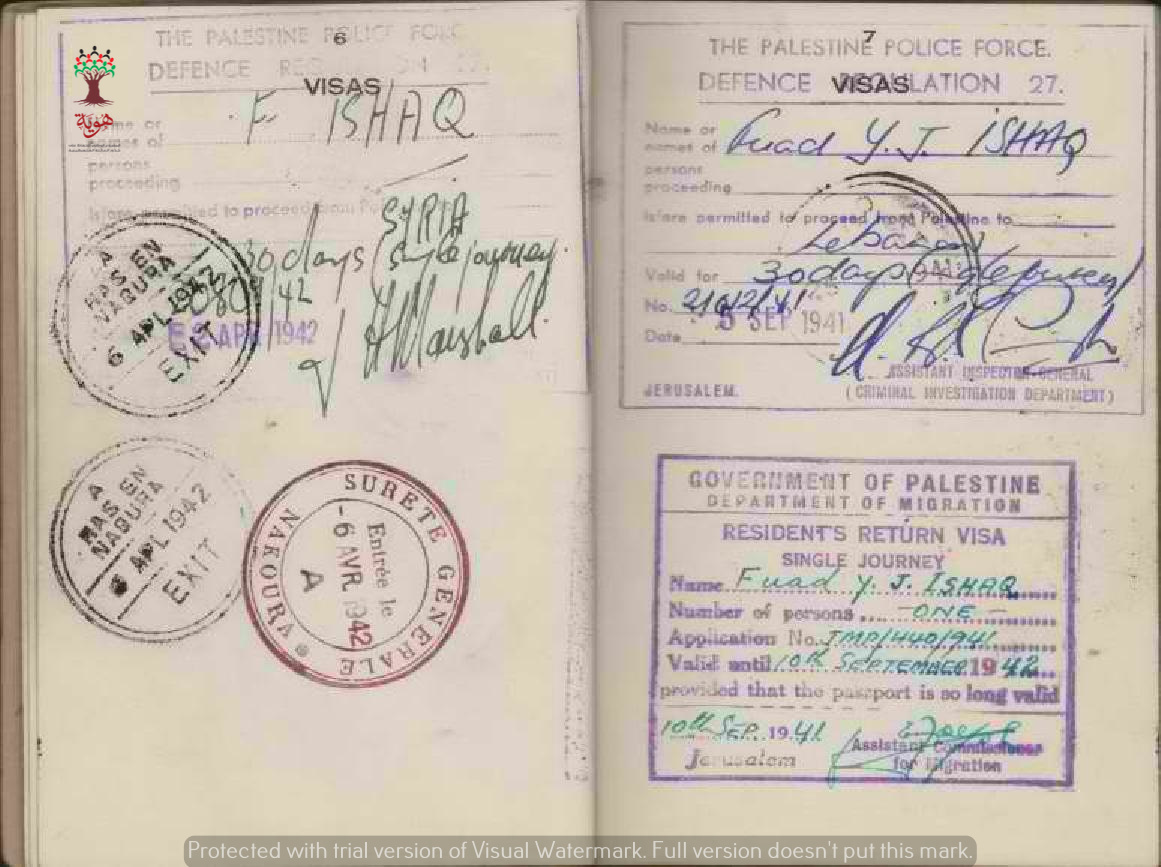 6
VISAS
THE PALESTINE POLICE FORCE
DEFENCE REGULATION 27.
هوية
Name or
names of F. ISHAQ
persons
proceeding
Is/are permitted to proceed from Palestine to
SYRIA
30 days (single journey.
/42
APR 1942
H Marshall.
A
RAS EN
NAQURA
6 APL 1942
EXIT
A
RAS EN
NAQURA
6 APL 1942
EXIT
SURETE GENERALE
NAKOURA
Entrée le
-6 AVR 1942
A
7
VISAS
THE PALESTINE POLICE FORCE.
DEFENCE REGULATION 27.
Name or
names of Fuad Y. J. ISHAQ
persons
proceeding
Is/are permitted to proceed from Palestine to
Lebanon
Valid for 30 days
No. 21012/41
Date 5 SEP 1941
ASSISTANT INSPECTOR-GENERAL
JERUSALEM. (CRIMINAL INVESTIGATION DEPARTMENT)
GOVERNMENT OF PALESTINE
DEPARTMENT OF MIGRATION
RESIDENT'S RETURN VISA
SINGLE JOURNEY
Name Fuad Y. J. ISHAQ
Number of persons .... - ONE -
Application No. JMP/440/941
Valid until 10th SEPTEMBER 1942
provided that the passport is so long valid
10th SEP. 1941
Assistant Commissioner
Jerusalem for Migration
Protected with trial version of Visual Watermark. Full version doesn't put this mark.